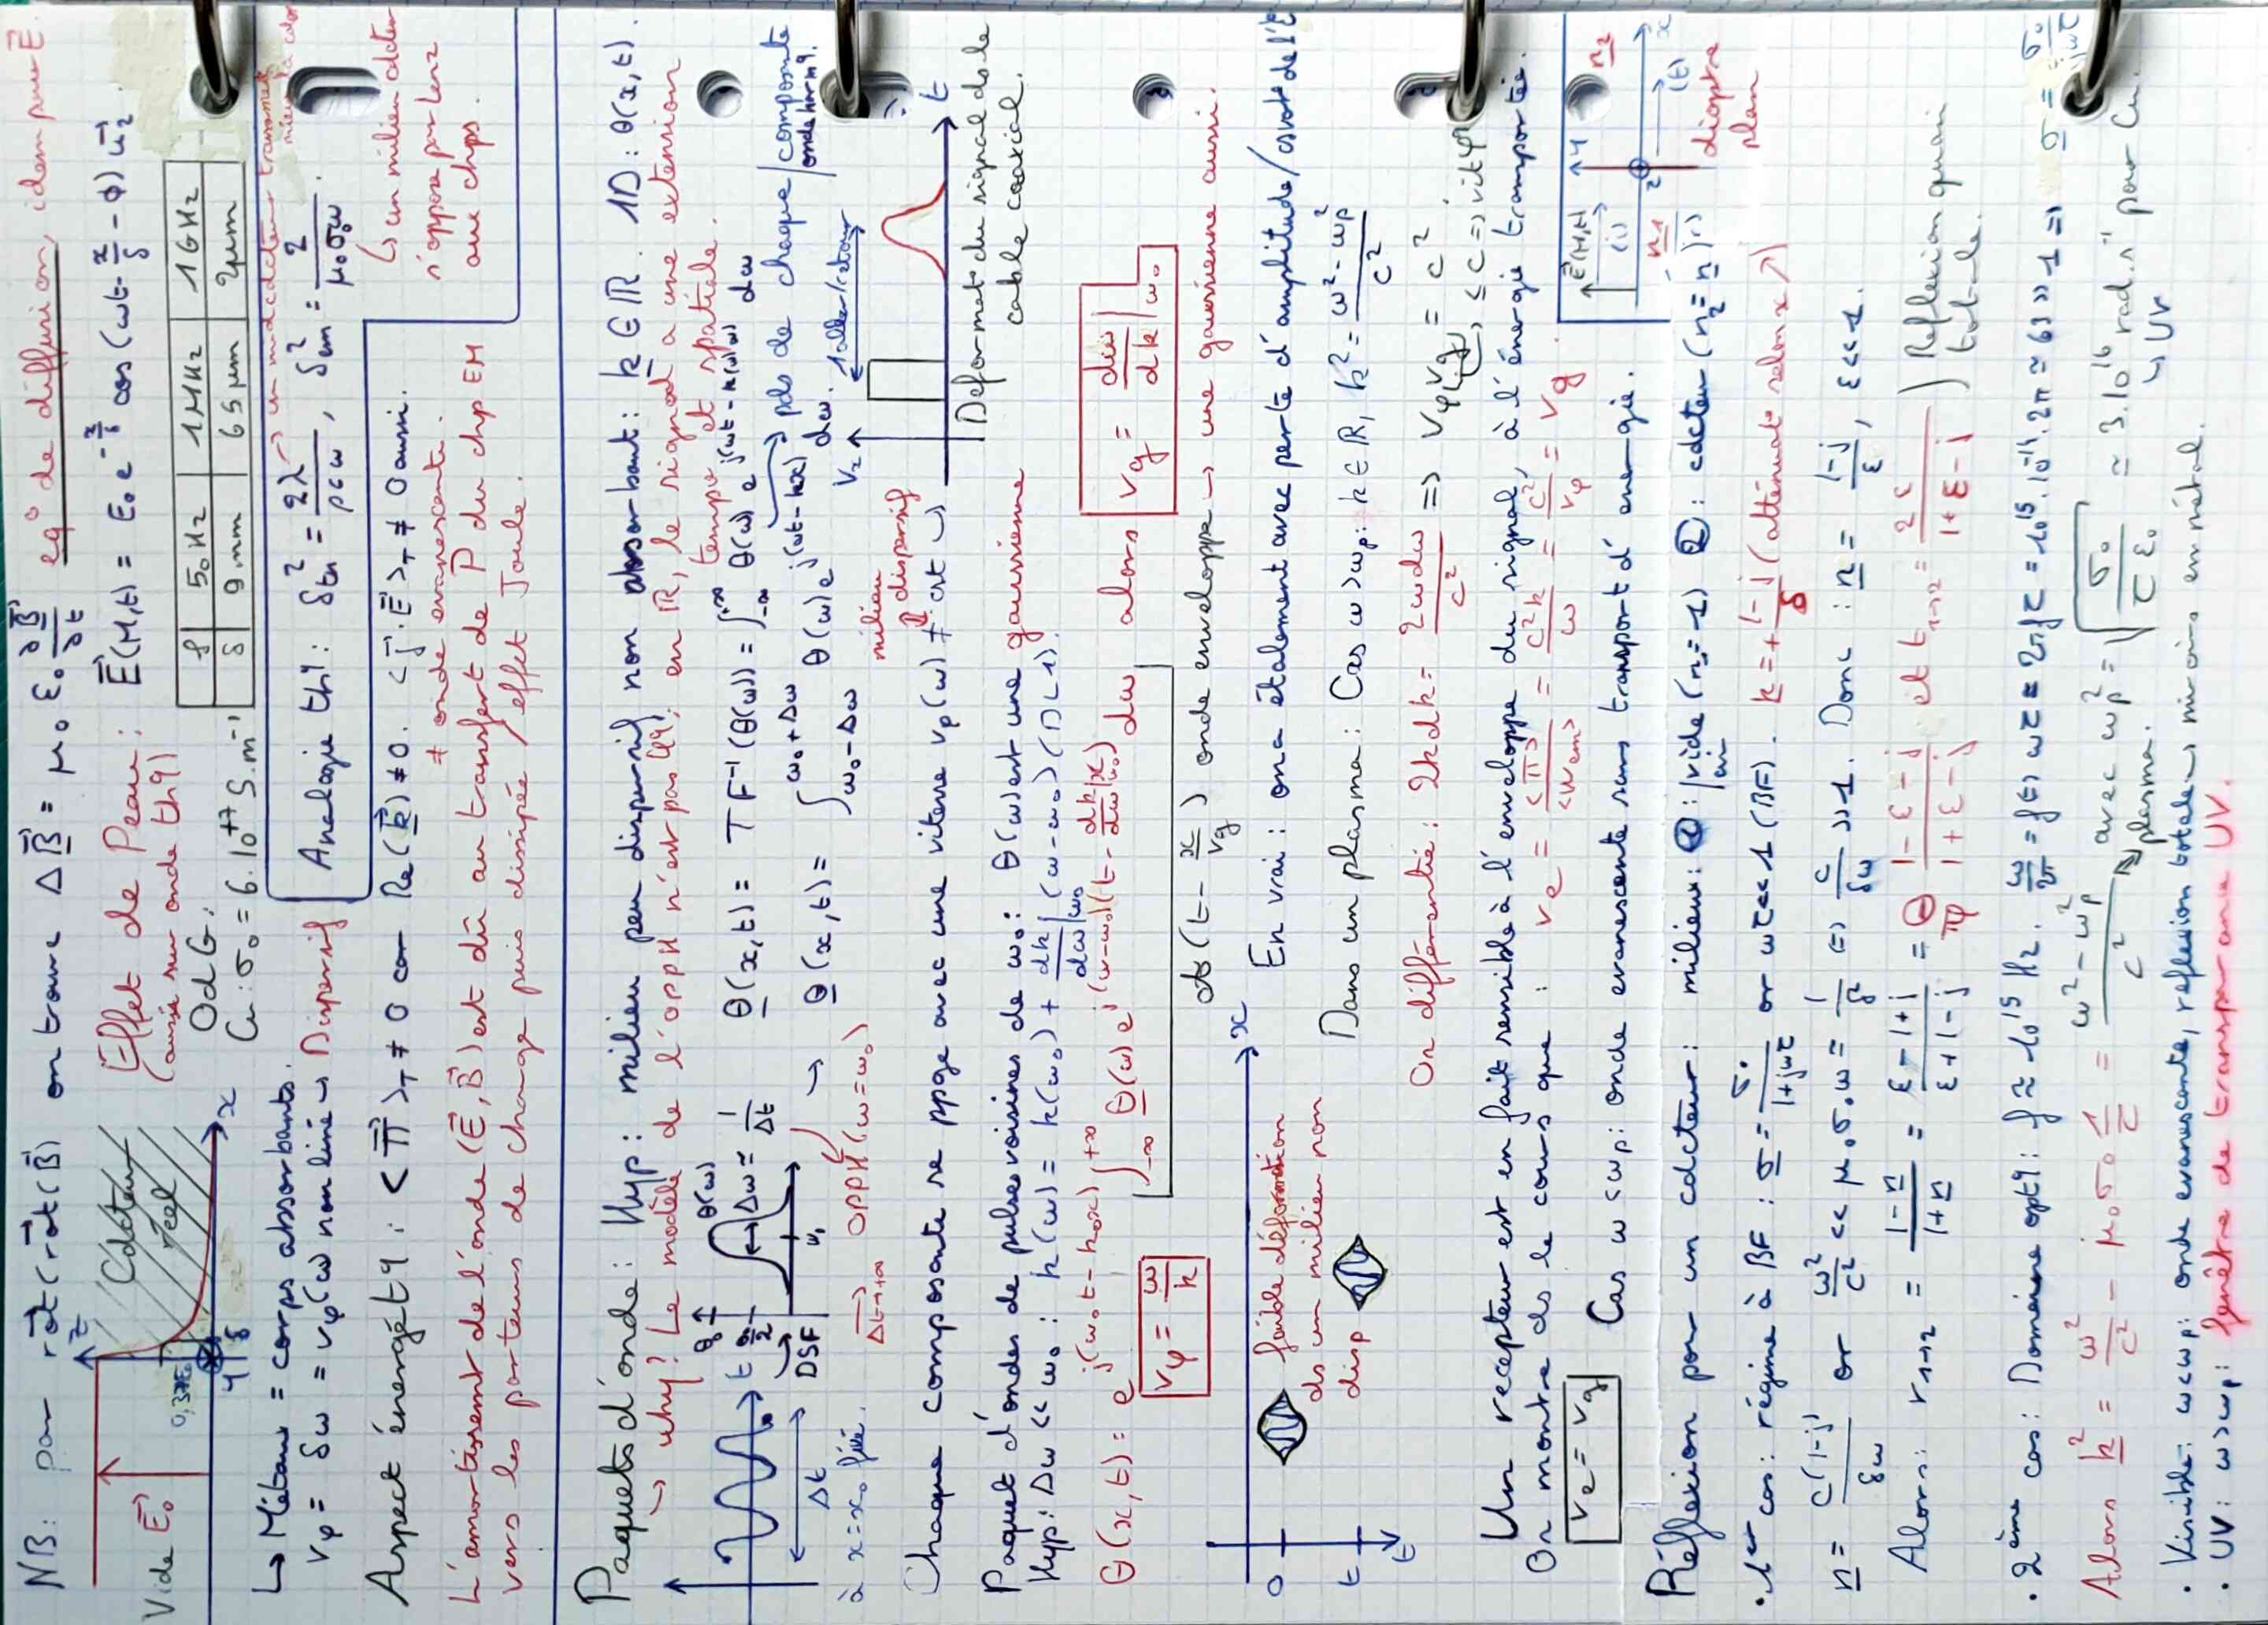 NB: par rot(rot(B)) on trouve ΔB = μ₀ε₀ ∂B/∂t eq° de diffusion, idem pour E
Vide E₀ Cdcteur réel
0,37E₀ δ x y z
Effet de Peau: E(M,t) = E₀ e^(-x/δ) cos(ωt - x/δ - φ) u₂
(aussi sur onde th9)
OdG:
Cu: σ₀ = 6.10^+7 S.m⁻¹
f 50Hz 1MHz 1GHz
δ 9mm 65μm 2μm
↳ Métaux = corps absorbants.
vφ = δω = vφ(ω) non liné → Dispersif
Analogie th9: δth² = 2λ/ρcω, δem² = 2/μ₀σ₀ω.
un cdcteur transmet
↳ un milieu cdcteur s'oppose par lenz aux chps.
Aspect énergét9: <Π>T ≠ 0 car Re(k) ≠ 0. <j.E>T ≠ 0 aussi.
≠ onde evanescente.
L'amortissement de l'onde (E,B) est dû au transfert de P du chp EM
vers les porteurs de charge puis dissipée / effet Joule.
Paquets d'onde: Hyp: milieu peu dispersif non absorbant: k ∈ ℝ. 1D: θ(x,t).
↳ why? Le modèle de l'oppH n'est pas ϕ9: en ℝ, le signal a une extension
tempo et spatiale.
θ(x,t) = TF⁻¹(θ(ω)) = ∫_{-∞}^{+∞} θ(ω) e^{j(ωt - k(ω)x)} dω
θ(x,t) = ∫_{ω₀-Δω}^{ω₀+Δω} θ(ω) e^{j(ωt-kx)} dω.
pds de chaque composante / onde harm9.
Δt DSF θ(ω) Δω ≃ 1/Δt
à x = x₀ fixé. Δt→+∞ OPPH (ω = ω₀)
Chaque composante se ppge avec une vitesse vp(ω) ≠ cst ↪ milieu dispersif
1 aller/retour
Deformat° du signal ds le cable coaxial.
Paquet d'ondes de pulse voisines de ω₀: θ(ω) est une gaussienne
Hyp: Δω << ω₀: k(ω) = k(ω₀) + dk/dω|ω₀ (ω-ω₀) (DL1).
θ(x,t) = e^{j(ω₀t - k₀x)} ∫_{-∞}^{+∞} θ(ω) e^{j(ω-ω₀)(t - dk/dω|ω₀ x)} dω alors vg = dω/dk|ω₀
vφ = ω/k
A(t - x/vg) onde enveloppe → une gaussienne aussi.
0 x t
faible déformation
ds un milieu non
disp
En vrai: on a étalement avec perte d'amplitude / csvat° de l'E
Dans un plasma: Cas ω > ωp: k ∈ ℝ, k² = (ω² - ωp²)/c²
On différentie: 2kdk = 2ωdω/c² ⇒ vφvg = c²
vg ≤ c ⇒ vit ϕ9
Un recepteur est en fait sensible à l'enveloppe du signal, à l'énergie transportée.
On montre ds le cours que: ve = <Π>/<uem> = c²k/ω = c²/vφ = vg.
ve = vg
Cas ω < ωp: onde evanescente sans transport d'energie.
Réflexion pour un cdcteur: milieux: ①: vide/air (n₁=1) ②: cdcteur (n₂=n)
E(M,t) (i) n₁ n₂ (t) x y z
dioptre plan
• 1er cas: régime à BF: σ = σ₀/(1+jωτ) or ωτ<<1 (BF). k = + (1-j)/δ (atténuat° selon x ↗)
n = c(1-j)/δω or ω²/c² << μ₀σ₀ω = 1/δ² ⇔ c/δω >> 1. Donc: n = (1-j)/ε, ε<<1.
Alors: r₁→₂ = (1-n)/(1+n) = (ε-1+j)/(ε+1-j) = ⊖ (1-ε-j)/(1+ε-j) et t₁→₂ = 2ε/(1+ε-j) ) Reflexion quasi totale.
πφ
• 2ème cas: Domaine opt9: f ≈ 10¹⁵ Hz. ω/2π = f ⇔ ωτ = 2πfτ = 10¹⁵.10⁻¹⁴.2π ≃ 63 >> 1 ⇒ σ = σ₀/jωτ
Alors k² = ω²/c² - μ₀σ₀ 1/τ = (ω² - ωp²)/c² avec ωp² = √(σ₀/τε₀) ≃ 3.10¹⁶ rad.s⁻¹ pour Cu.
↳ plasma. ↳ UV
• Visible: ω<ωp: onde evanescente, reflexion totale → miroirs en métal.
• UV: ω>ωp: fenêtre de transp aux UV.